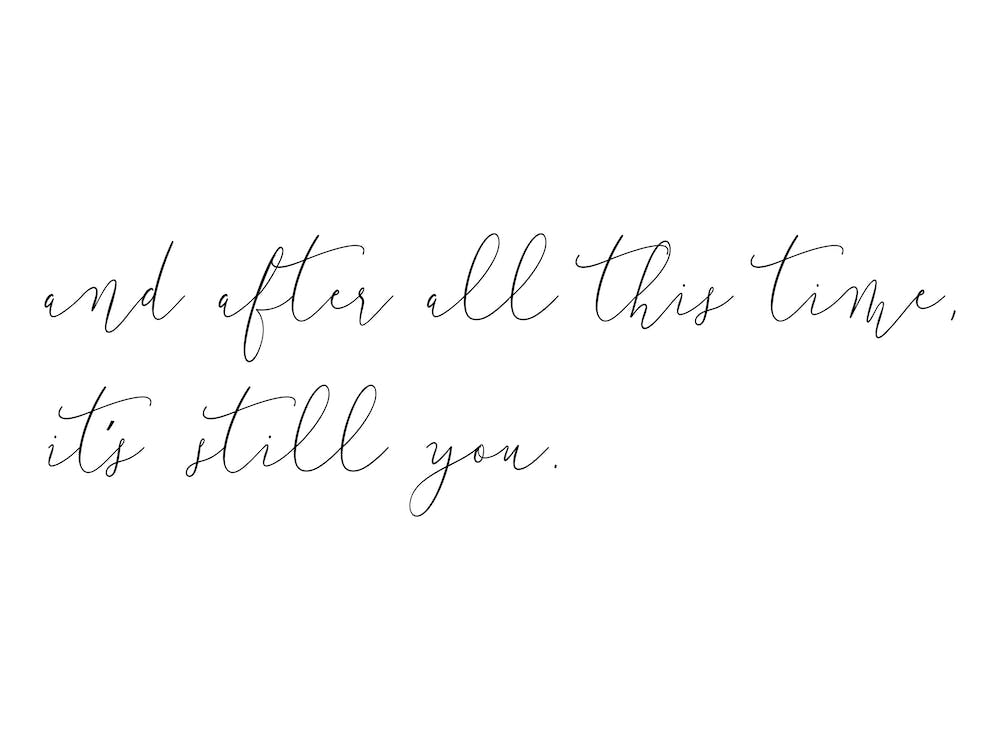 and after all this time,
it's still you.